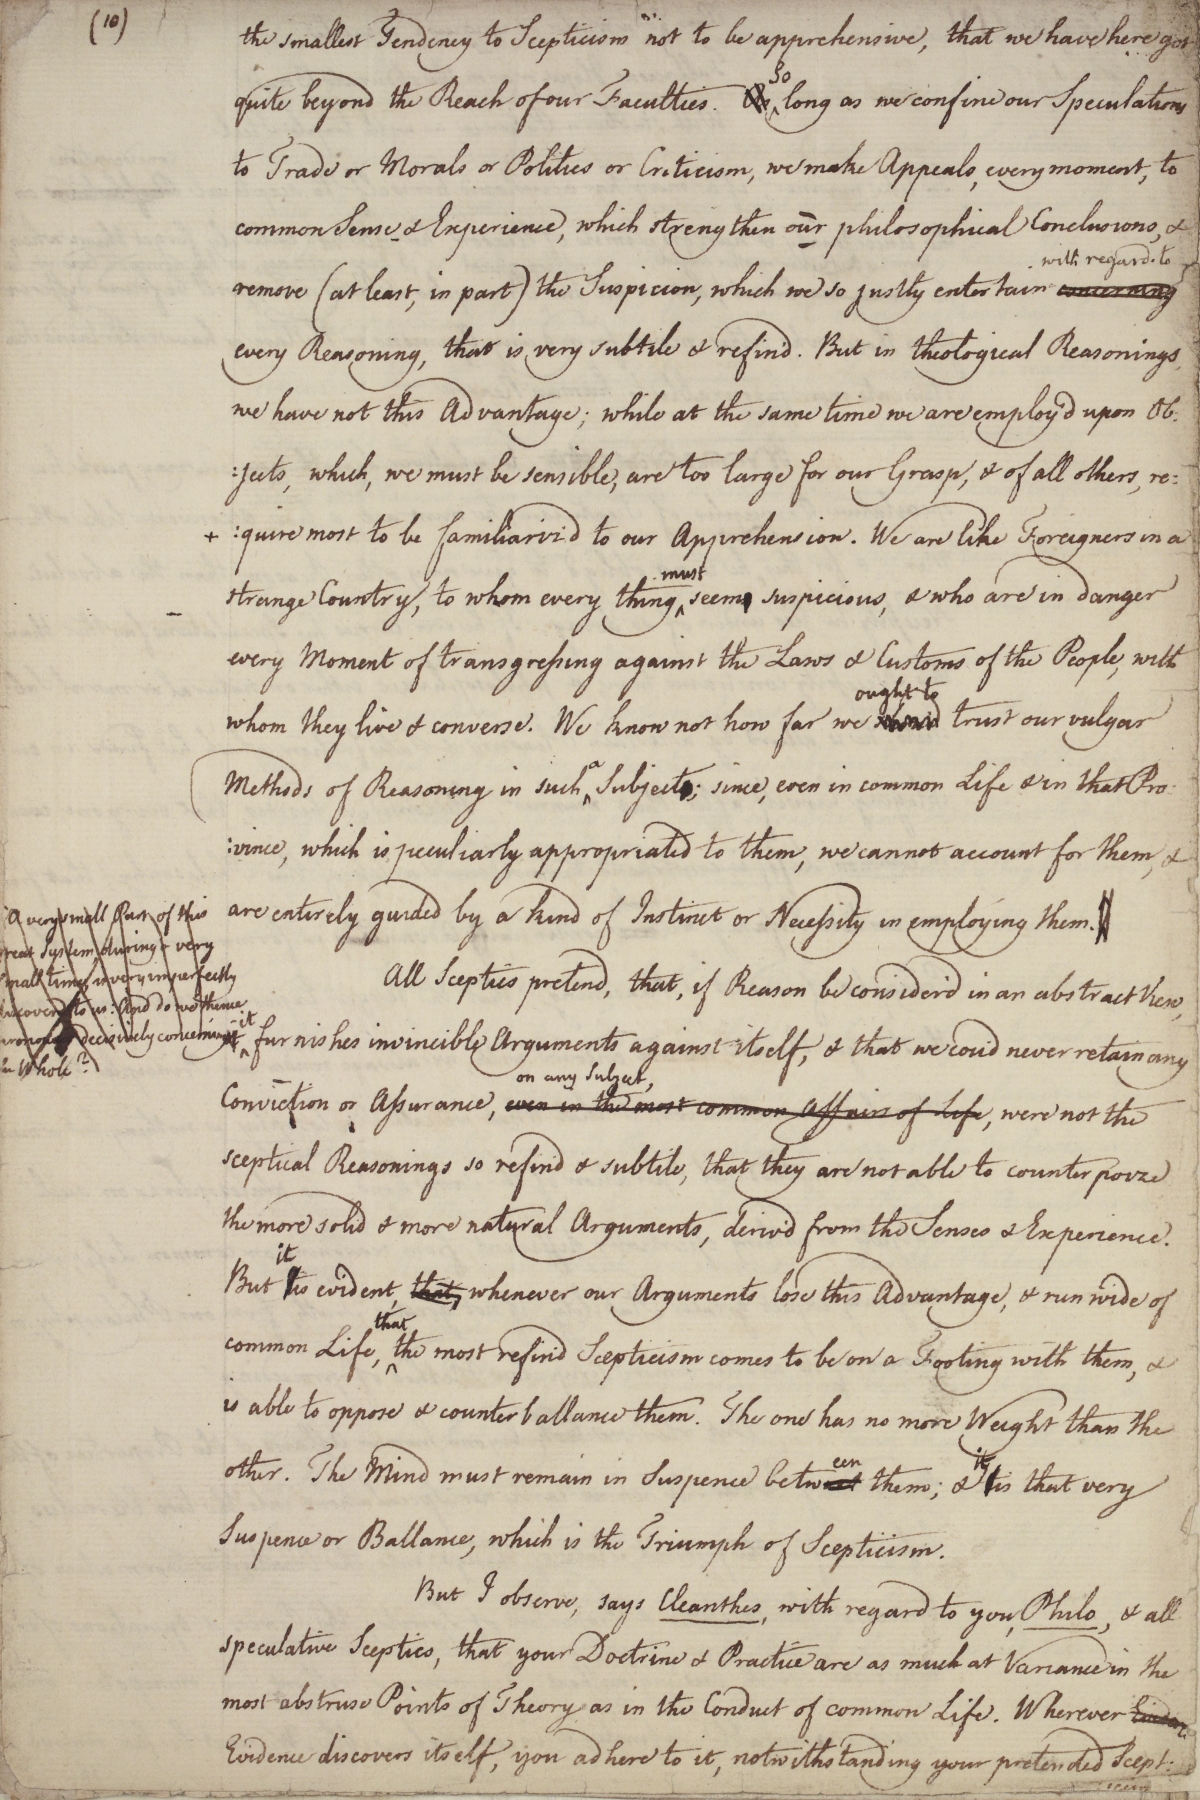 (10)
the smallest Tendency to Scepticism not to be apprehensive, that we have here got
quite beyond the Reach of our Faculties. So long as we confine our Speculations
to Trade or Morals or Politics or Criticism, we make Appeals, every moment, to
common Sense & Experience, which strengthen our philosophical Conclusions, &
with regard to
remove (at least, in part) the Suspicion, which we so justly entertain concerning
every Reasoning, that is very subtile & refin'd. But in theological Reasonings,
we have not this Advantage; while at the same time we are employ'd upon Ob:
:jects, which, we must be sensible, are too large for our Grasp, & of all others, re:
+ :quire most to be familiariz'd to our Apprehension. We are like Foreigners in a
must
strange Country, to whom every thing seem suspicious, & who are in danger
every Moment of transgressing against the Laws & Customs of the People, with
ought to
whom they live & converse. We know not how far we shoud trust our vulgar
Methods of Reasoning in such a Subject; since, even in common Life & in that Pro:
:vince, which is peculiarly appropriated to them, we cannot account for them, &
are entirely guided by a kind of Instinct or Necessity in employing them.
A very small Part of this
great System, during a very
small time, is very imperfectly
discover'd to us: And do we thence
pronounce decisively concerning
the Whole?
All Sceptics pretend, that, if Reason be consider'd in an abstract View,
it furnishes invincible Arguments against itself, & that we coud never retain any
on any Subject,
Conviction or Assurance, even in the most common Affairs of Life, were not the
sceptical Reasonings so refin'd & subtile, that they are not able to counterpoize
the more solid & more natural Arguments, deriv'd from the Senses & Experience.
it
But tis evident, that, whenever our Arguments lose this Advantage, & run wide of
that
common Life, the most refin'd Scepticism comes to be on a Footing with them, &
is able to oppose & counterballance them. The one has no more Weight than the
een it
other. The Mind must remain in Suspence betwixt them; & tis that very
Suspence or Ballance, which is the Triumph of Scepticism.
But I observe, says Cleanthes, with regard to you, Philo, & all
speculative Sceptics, that your Doctrine & Practice are as much at Variance in the
most abstruse Points of Theory as in the Conduct of common Life. Wherever
Evidence discovers itself, you adhere to it, notwithstanding your pretended Scept: